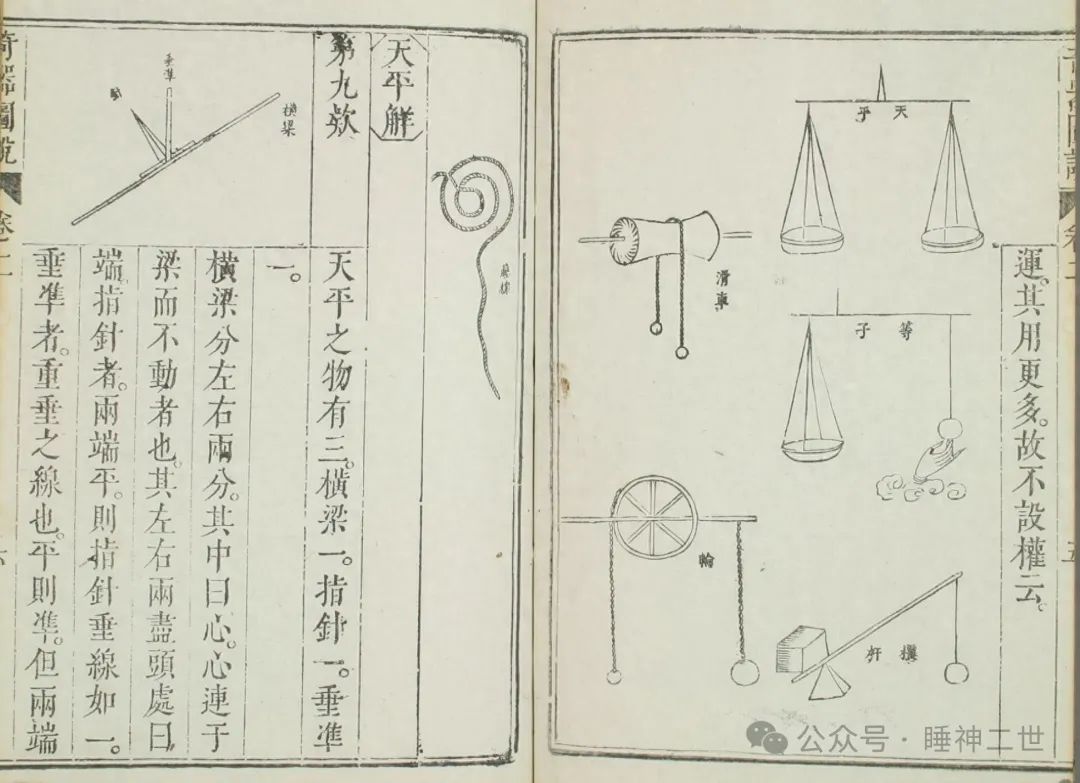 運。其用更多。故不設權云。
天平
等子
滑車
輪
槓杆
天平解
第九款
垂準
橫梁
天平之物有三。橫梁一。指針一。垂準
一。
橫梁分左右兩分。其中曰心。心連于
梁而不動者也。其左右兩盡頭處曰
端。指針者。兩端平。則指針垂線如一。
垂準者。重垂之線也。平則準。但兩端
奇器圖說
卷二
公众号·睡神二世